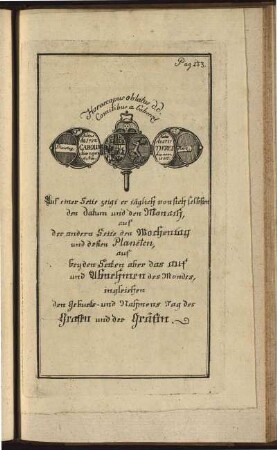 Pag 253.
Horoscopus oblatus d.d.
Comitibus a
CAROLUS
Auf einer Seite zeigt er täglich von sich selbsten
den datum und den Monath,
auf
der andern Seite den Wochentag
und deßen Planeten,
auf
beyden Seiten aber das Auf
und Abnehmen des Mondes,
ingleichen
den Geburts- und Nahmens Tag des
Grafen und der Gräfin.